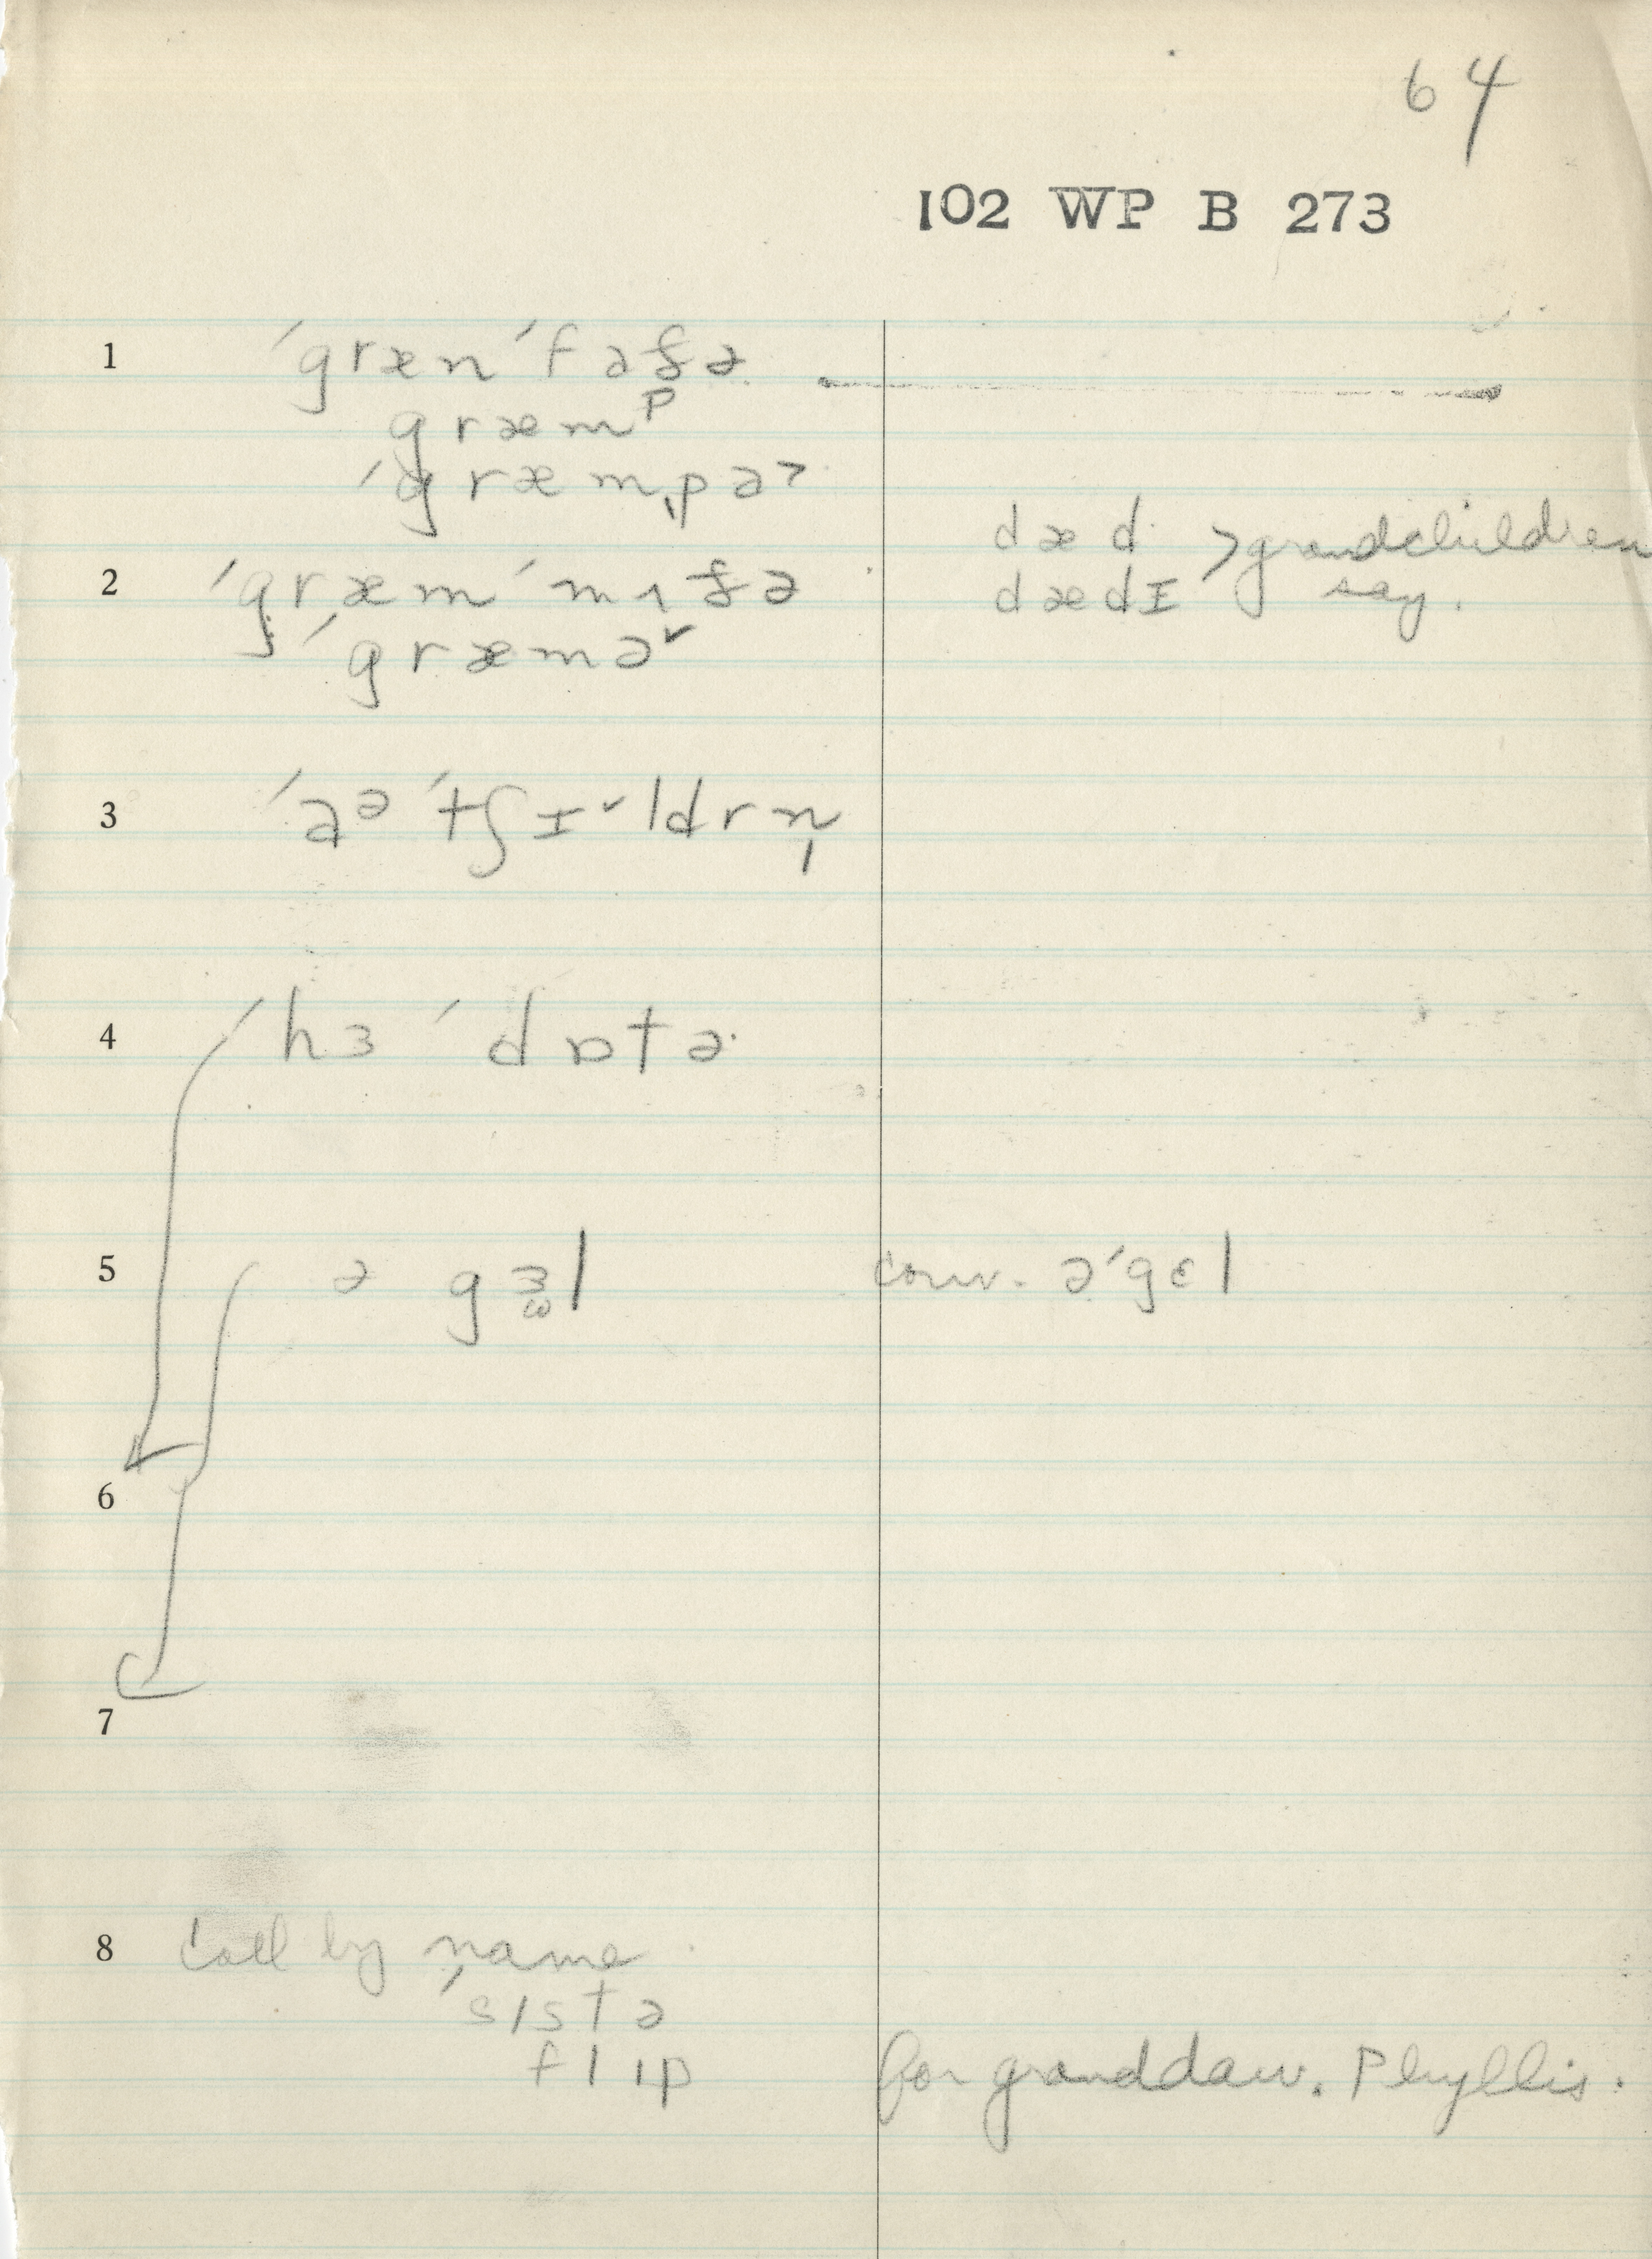 64
102 WP B 273
1 ˈgræn ˈfɑðə
græmᵖ
ˈgræmˌpɑ˃
dæd
dædɪ > grandchildren say.
2 ˈgræm ˈmʌðə
ˈgræmɑ˅
3 ˈɑᵊ ˈtʃɪ˅ldrn̩
4 ˈhɜ ˈdɒtə
5 ə gɜl conv. ə ˈgɛl
6
7
8 call by name
ˈsɪstə
flɪp for granddau. Phyllis.